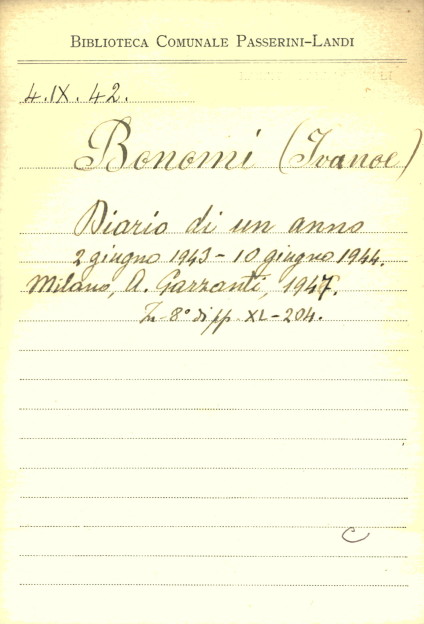 BIBLIOTECA COMUNALE PASSERINI-LANDI
4.IX.42.
Bonomi (Ivanoe)
Diario di un anno
2 giugno 1943 - 10 giugno 1944.
Milano, A. Garzanti, 1947.
In 8° di pp. XL-204.
C